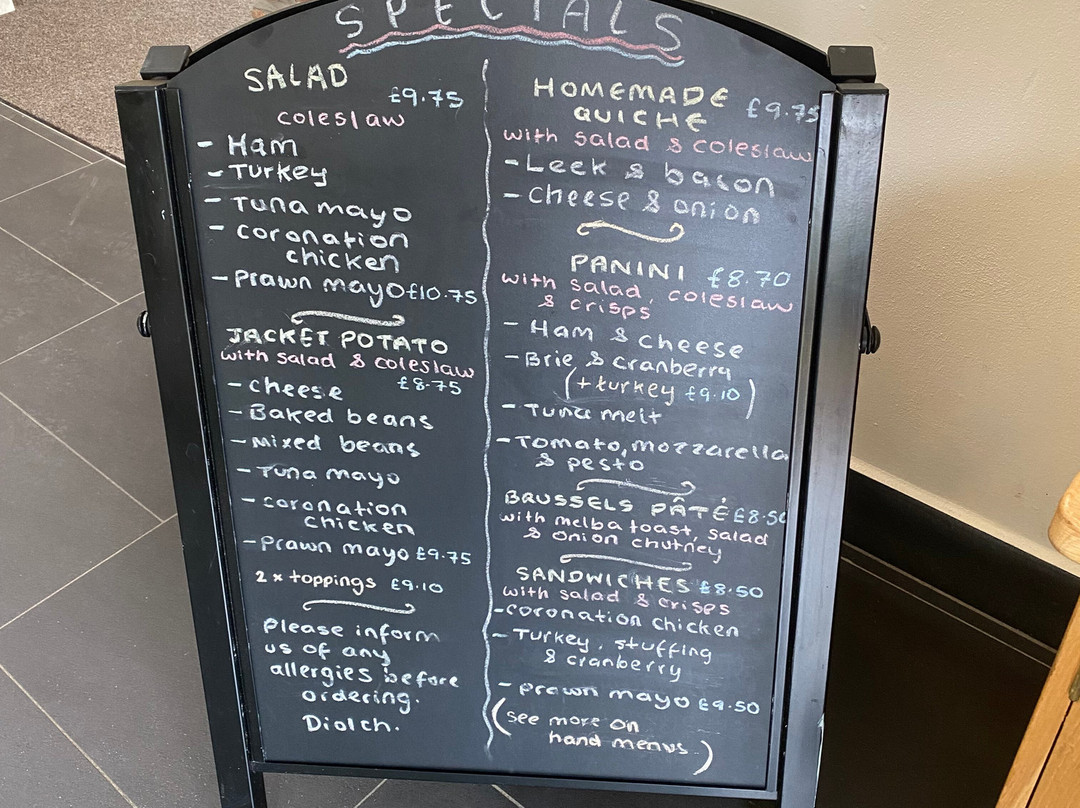 SPECIALS
SALAD
£9.75
coleslaw
- Ham
- Turkey
- Tuna mayo
- coronation
chicken
- Prawn mayo £10.75
JACKET POTATO
with salad & coleslaw
- cheese £8.75
- Baked beans
- Mixed beans
- Tuna mayo
- coronation
chicken
- Prawn mayo £9.75
2 x toppings £9.10
Please inform
us of any
allergies before
ordering.
Diolch.
HOMEMADE
QUICHE £9.75
with salad & coleslaw
- Leek & bacon
- cheese & onion
PANINI £8.70
with salad, coleslaw
& crisps
- Ham & cheese
- Brie & cranberry
(+ turkey £9.10)
- Tuna melt
- Tomato, mozzarella
& pesto
BRUSSELS PÂTÉ £8.50
with melba toast, salad
& onion chutney
SANDWICHES £8.50
with salad & crisps
- coronation chicken
- Turkey, stuffing
& cranberry
- prawn mayo £9.50
(see more on
hand menus)